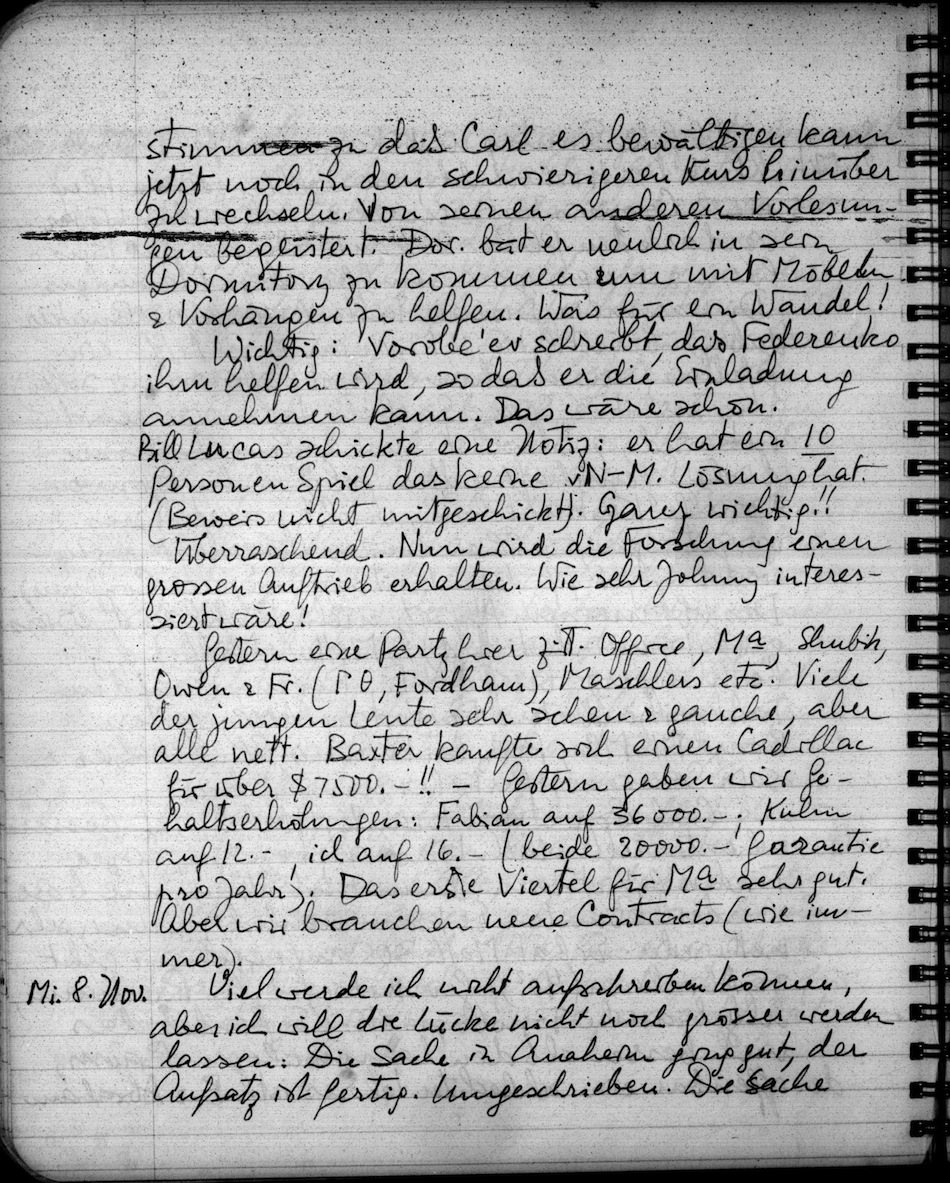 stimmen zu das Carl es bewältigen kann
jetzt noch in den schwierigeren Kurs hinüber
zu wechseln. Von seinen anderen Vorlesun-
gen begeistert. Dor. bat er neulich in sein
Dormitory zu kommen um mit Möbeln
& Vorhängen zu helfen. Was für ein Wandel!
Wichtig: Vorobe'ev schreibt, das Federenko
ihm helfen wird, so das er die Einladung
annehmen kann. Das wäre schön.
Bill Lucas schickte eine Notiz: er hat ein 10
Personen Spiel das keine vN-M. Lösung hat.
(Beweis nicht mitgeschickt). Ganz wichtig!!
Überraschend. Nun wird die Forschung einen
grossen Auftrieb erhalten. Wie sehr Johnny interes-
siert wäre!
Gestern eine Party hier f. Office, Mª, Shubik,
Owen & Fr. (Γθ, Fordham), Maschlers etc. Viele
der jungen Leute sehr scheu & gauche, aber
alle nett. Baxter kaufte sich einen Cadillac
für über $7500.-!! - Gestern gaben wir Ge-
haltserhöhungen: Fabian auf 36000.-; Kuhn
auf 12.-, ich auf 16.- (beide 20000.- Garantie
pro Jahr). Das erste Viertel für Mª sehr gut.
Aber wir brauchen neue Contracts (wie im-
mer).
Mi. 8. Nov. Viel werde ich nicht aufschreiben können,
aber ich will die Lücke nicht noch grösser werden
lassen: Die Sache in Anaheim ging gut, der
Aufsatz ist fertig. Umgeschrieben. Die Sache